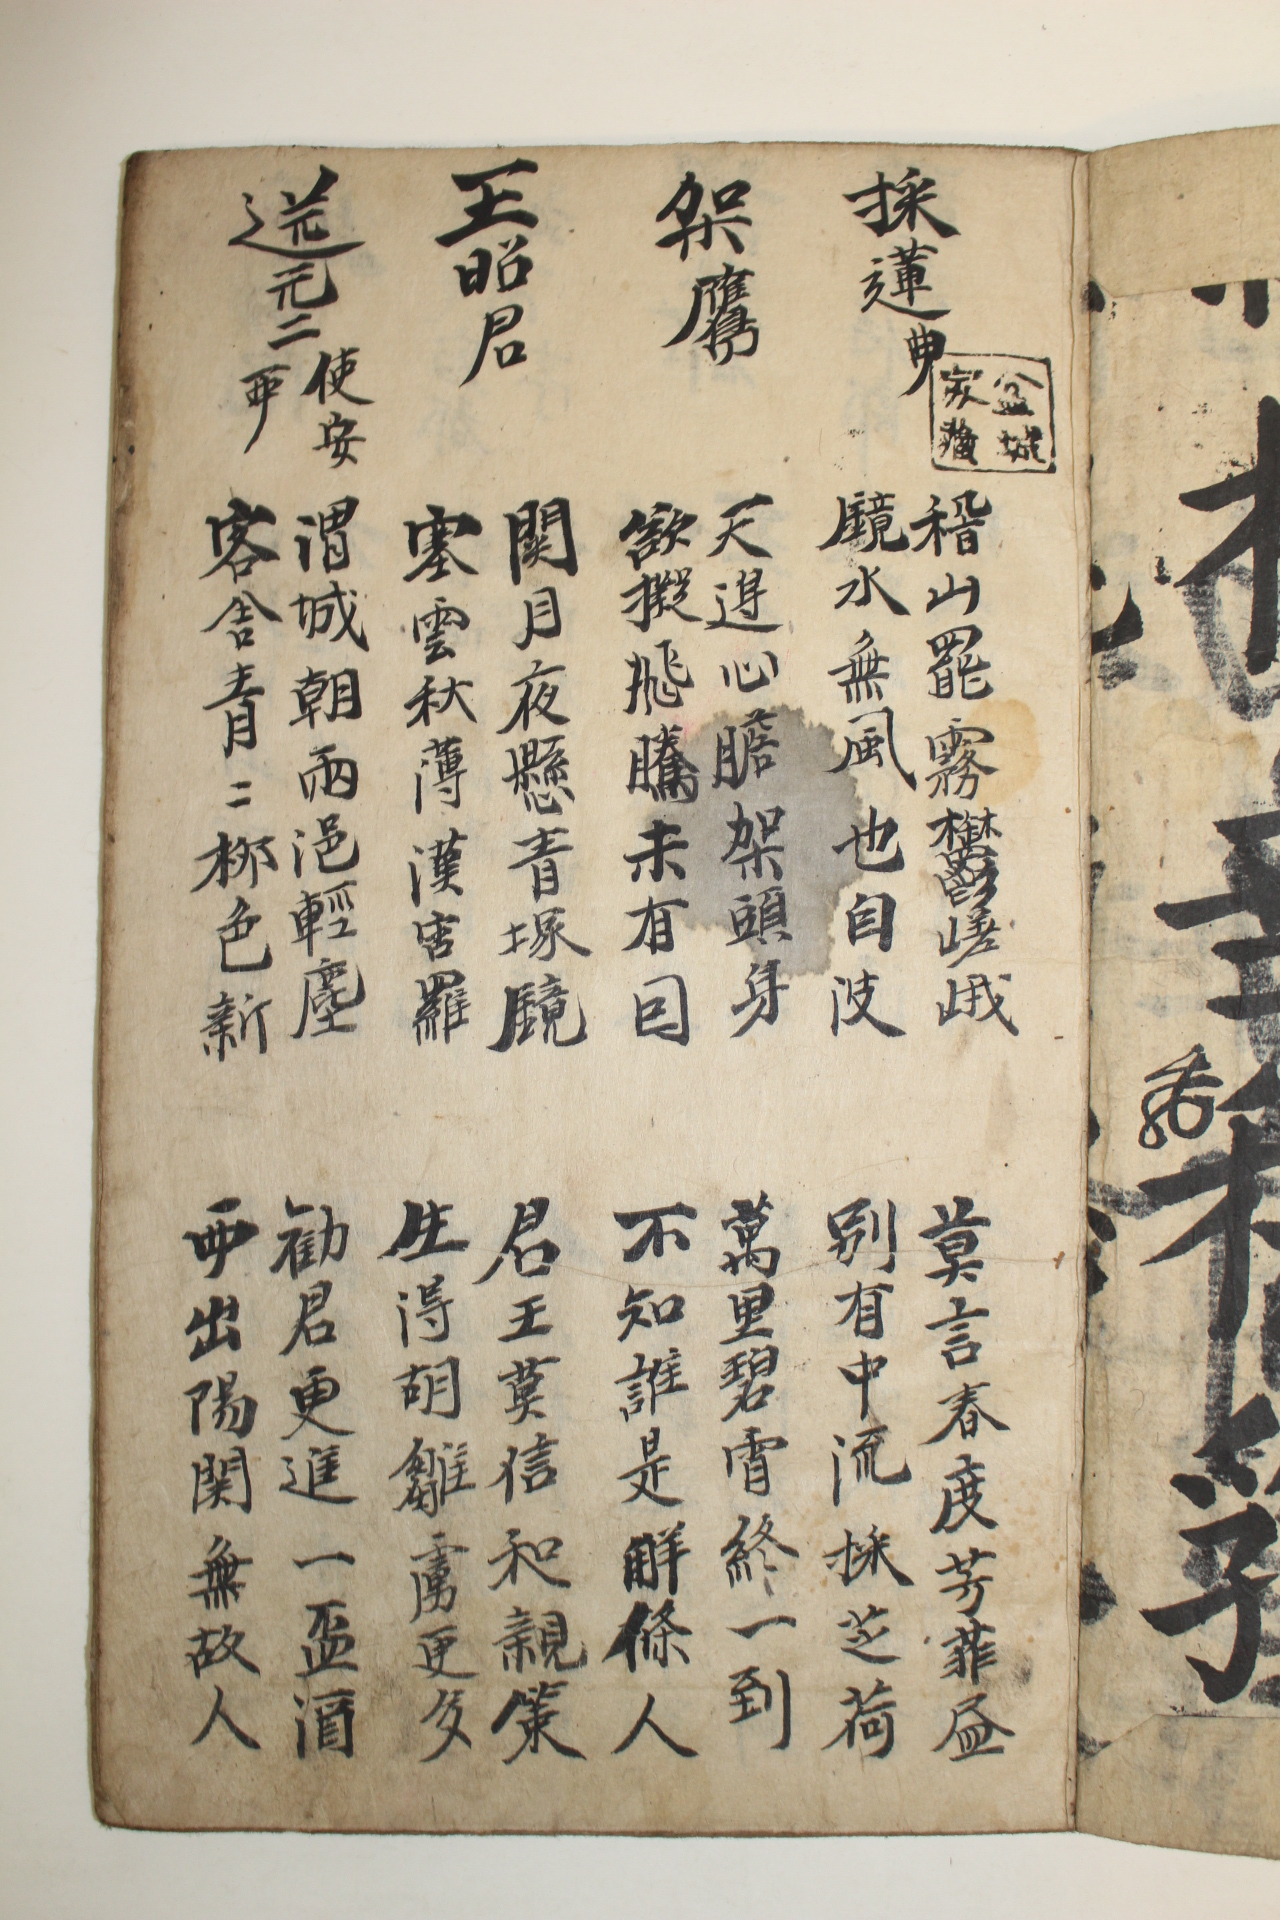 採蓮曲
盆城
家藏
稽山罷霧欝嵯峨
鏡水無風也自波
莫言春度芳菲盡
別有中流採芝荷
架鷹
天遣心膽架頭身
欲擬飛騰未有因
萬里碧霄終一到
不知誰是解絛人
王昭君
関月夜懸青塚鏡
塞雲秋薄漢宮羅
君王莫信和親策
生得胡雛虜更多
送元二使安西
渭城朝雨浥輕塵
客舍青〻柳色新
勸君更進一盃酒
西出陽関無故人